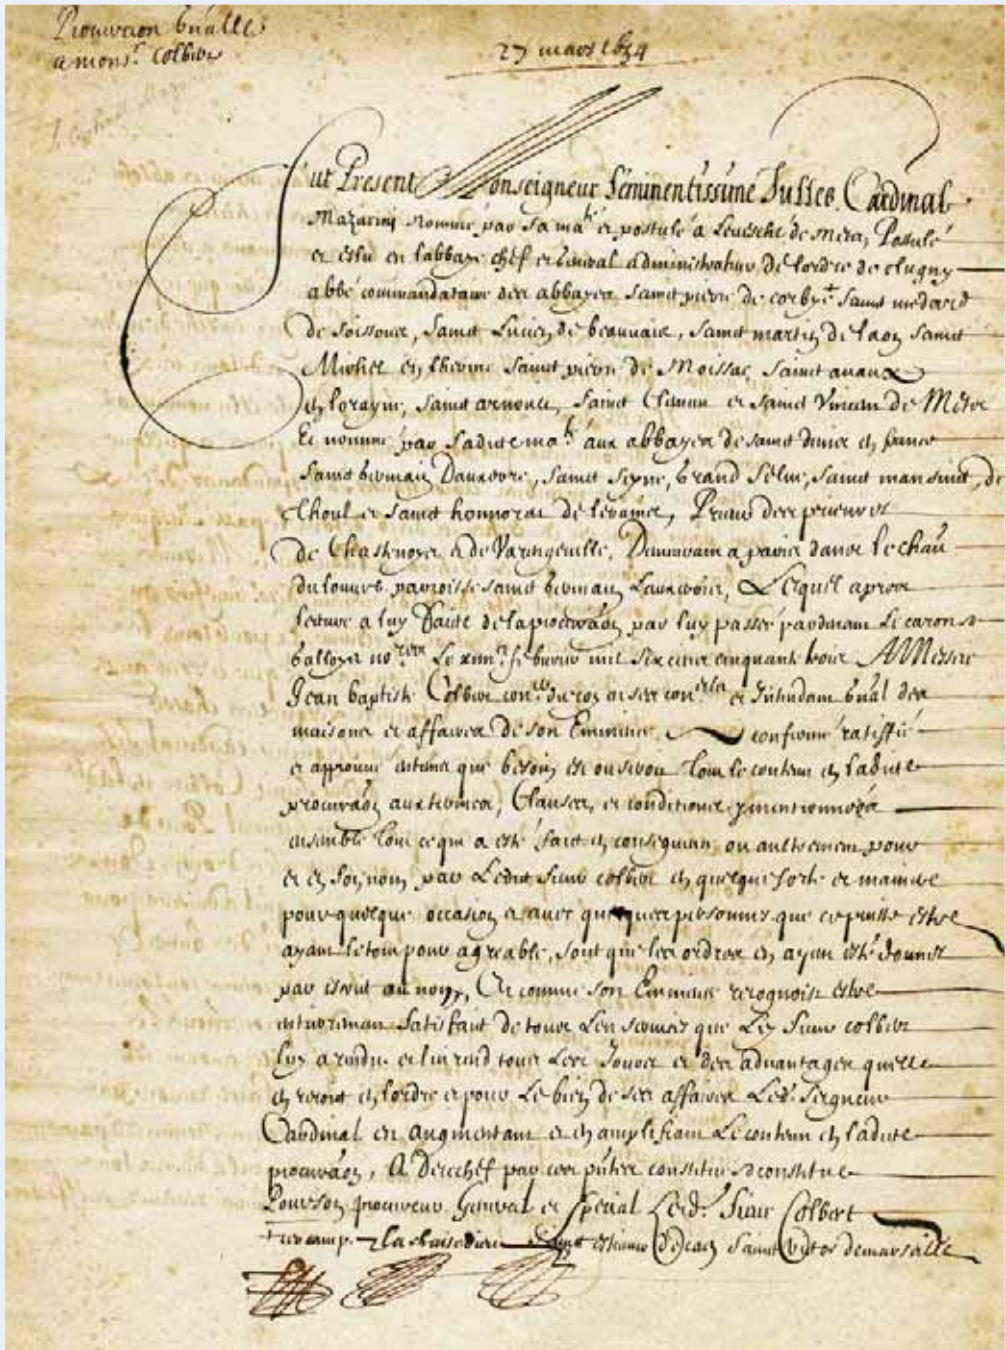 Procuraon gnalle
a monsr. Colbert
27 mars 1654
Fut Present Monseigneur Léminentissime Julles Cardinal
Mazarini nommé par sa mate et postulé a Levesché de Metz, Postulé
et eslu en labbaye chef et general administrateur de lordre de clugny
abbé commandataire des abbayes saint pierre de corbye saint medard
de soissons, saint Lucien de beauvais, saint martin de laon saint
Michel en therine saint pierre de Moissac, saint avaux
en lorayne, saint arnoul, saint Clement et saint Vincent de Metz
Et nommé par sadite mate aux abbayes de saint denis en france
saint Germain Dauxerre, saint seyne, Grand selve, saint mansuit, de
Thoul et saint honnorat de lerains, Prieur des prieurez
de Chastenoyes et de Varengeville, Demeurant a paris dans le chau
du louvre parroisse saint Germain Lauxerrois, Lequel apres
lecture a luy faite de la procuraon par luy passée pardevant Le caron et
Galloys nores Le xiiie febvrier mil six cens cinquante trois A Messire
Jean baptiste Colbert coner du roy en ses conseils et Intendant gnal des
maisons et affaires de son Eminence confirmé ratiffié
et approuvé entant que besoin est ou seroit tout le contenu en ladite
procuraon aux termes, Clauses, et conditions y mentionnées
ensemble tout ce qui a esté fait en consequence ou aultrement pour
et en son nom par Ledit sieur colbert en quelque sorte et maniere
pour quelque occasion et avec quelques personnes que ce puisse estre
ayant le tout pour agreable, soit que les ordres en ayent esté donnez
par escrit ou non, Et comme son Eminence recognoist estre
entierement satisfait de tous les services que Led. sieur colbert
luy a rendu et luy rend tous les Jours et des advantages quelle
en reçoit en lordre et pour Le bien de ses affaires Led. seigneur
Cardinal en augmentant et en ampliffiant Le contenu en ladite
procuraon, A Derechef par ces pntes constitue et constitue
Pour son procureur General et special Led. sieur Colbert
la chaise dieu saint estienne de Caen saint Victor de marseille